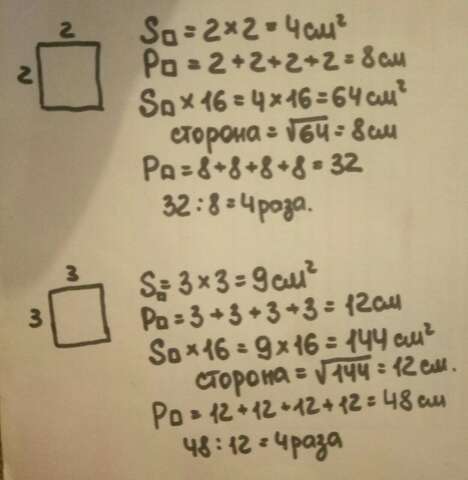 2
2
S□ = 2×2 = 4см²
P□ = 2+2+2+2 = 8см
S□×16 = 4×16 = 64см²
сторона = √64 = 8см
P□ = 8+8+8+8 = 32
32:8 = 4раза.
3
3
S□ = 3×3 = 9см²
P□ = 3+3+3+3 = 12см
S□×16 = 9×16 = 144см²
сторона = √144 = 12см.
P□ = 12+12+12+12 = 48см
48:12 = 4раза